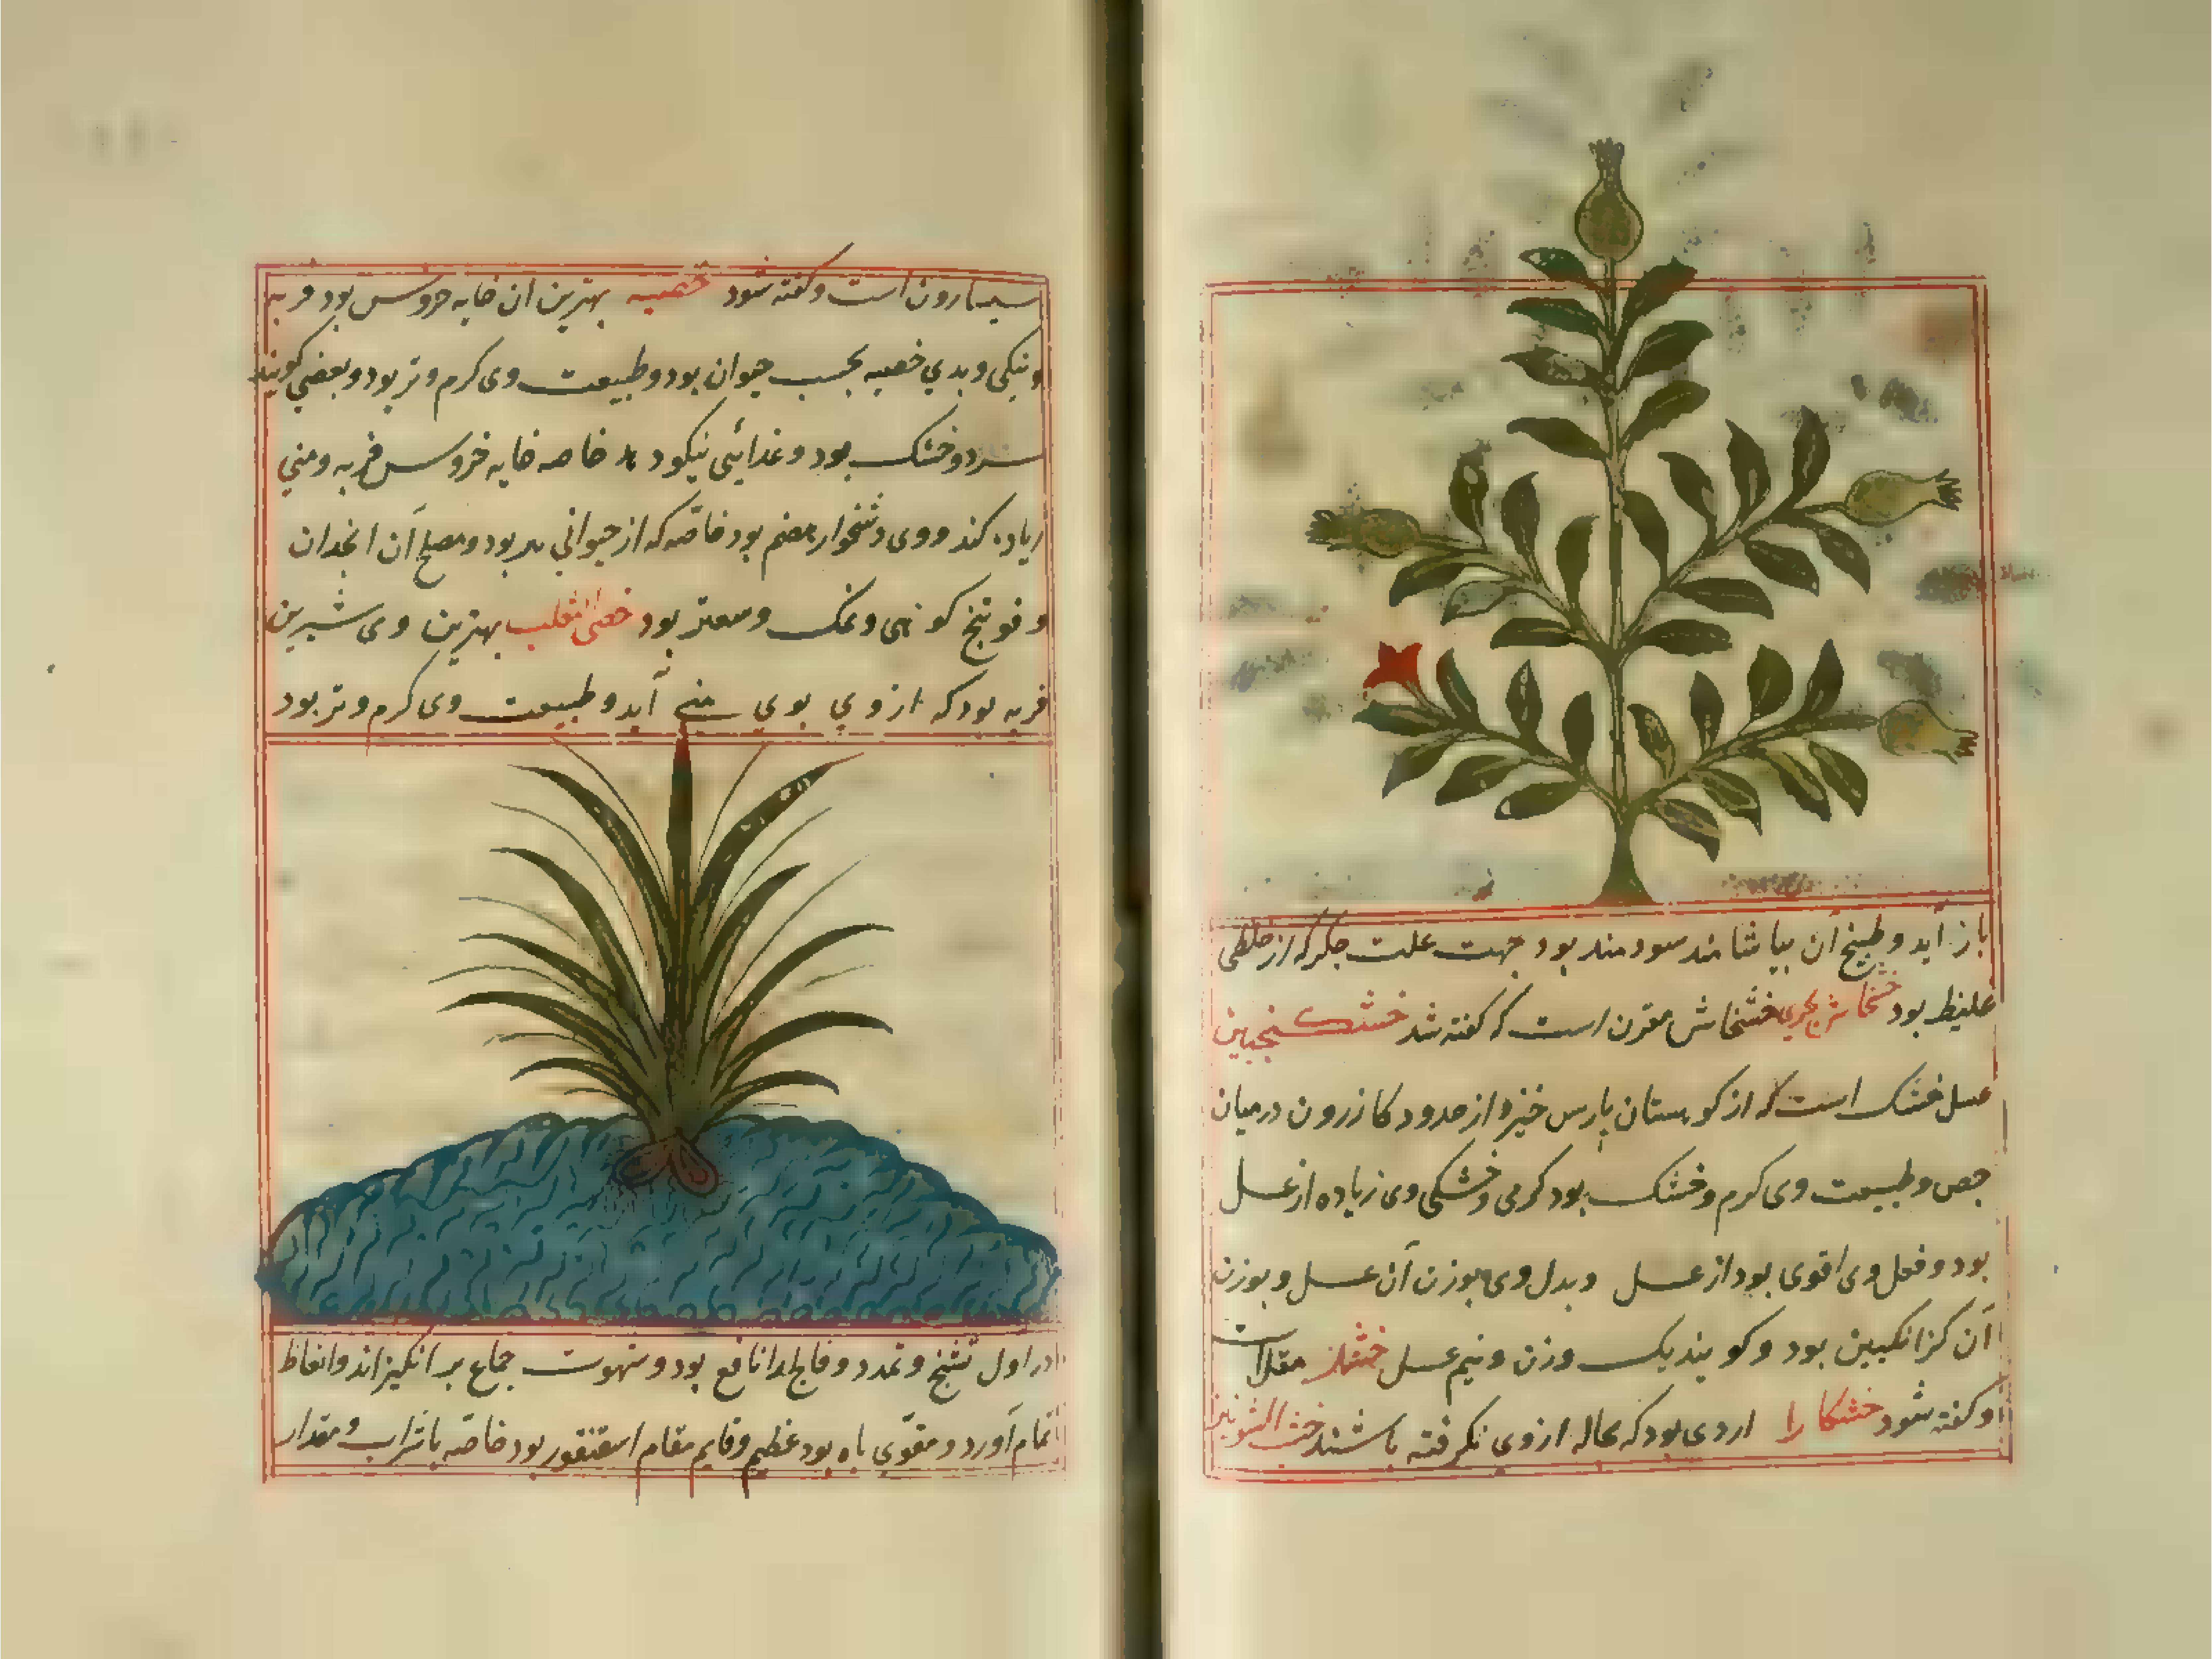 باز آید و طبیخ آن بیاشامند سودمند بود جهت علت جگر که از خلطی
غلیظ بود خشخاش بحری خشخاش مقرن است که گفته شد خشکنجبین
عسل خشک است که از کوهستان پارس خیزد از حدود کازرون در میان
جص و طبیعت وی گرم و خشک بود گرمی و خشکی وی زیاده از عسل
بود و فعل وی اقوی بود از عسل و بدل وی بوزن آن عسل و بوزن
آن کزانکبین بود و کویند یک وزن و نیم عسل
و گفته شود خشکار را اردی بود که نخاله از وی نگرفته باشند
سیسارون است و گفته شود خصیه بهترین آن خایه خروس بود فربه
و نیکی و بدی خصیه بحسب حیوان بود و طبیعت وی گرم و تر بود و بعضی گویند
سرد و خشک بود و غذائی نیکو دهد خاصه خایه خروس فربه و منی
زیاده کند و وی دشخوار هضم بود خاصّه که از حیوانی پیر بود و مصلح آن انجدان
و فوتنج کوهی و نمک و سعتر بود خصی الثعلب بهترین وی شیرین
فربه بود که از وی بوی منی آید و طبیعت وی گرم و تر بود
در اول تشنج و تمدد و فالج را نافع بود و شهوت جماع برانگیزاند و انعاظ
تمام آورد و مقوّی باه بود عظیم و قایم مقام اسقنقور بود خاصّه با شراب و مقدار